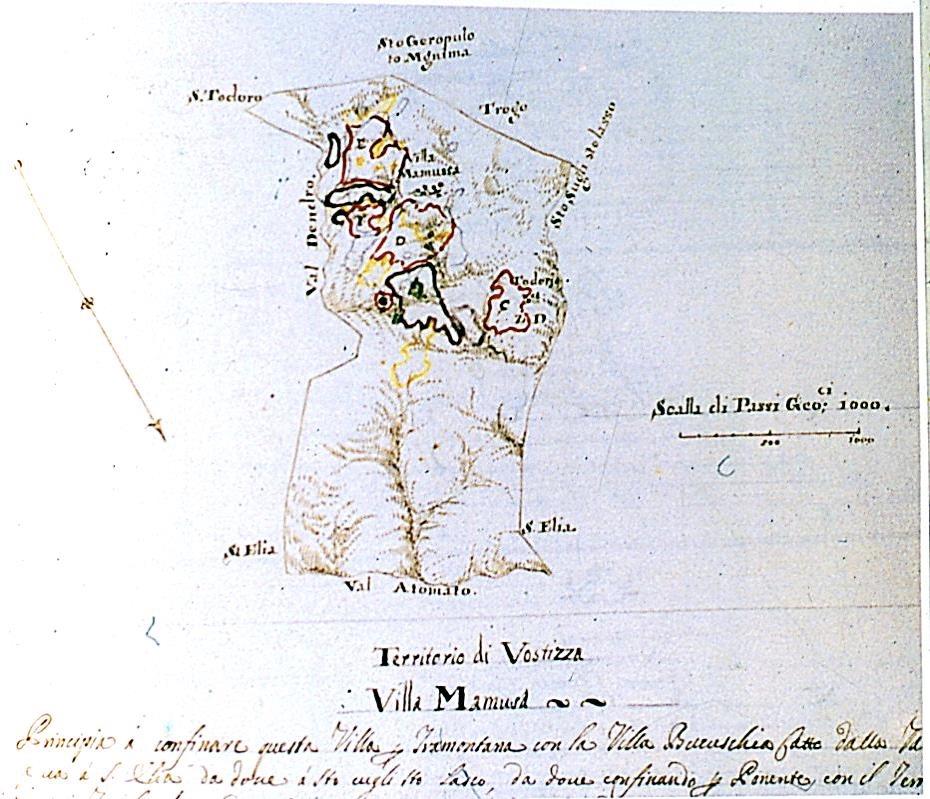 Sto Geropulo
to Mgnima
S. Todoro
Trogo
Sto Sugli sto lasso
Villa
Mamussa
Val Dendro
E
F
D
A
B
C
D
Scalla di Passi Geo;ci 1000.
500
1000
S. Elia
St Elia
Val Atomato.
Territorio di Vostizza
Villa Mamusa
Principia à confinare questa Villa p Tramontana con la Villa Bucuschia fatto dalla Va
à S. Elia da dove à sto cugli sto lasco, da dove confinando p Ponente con il Terr